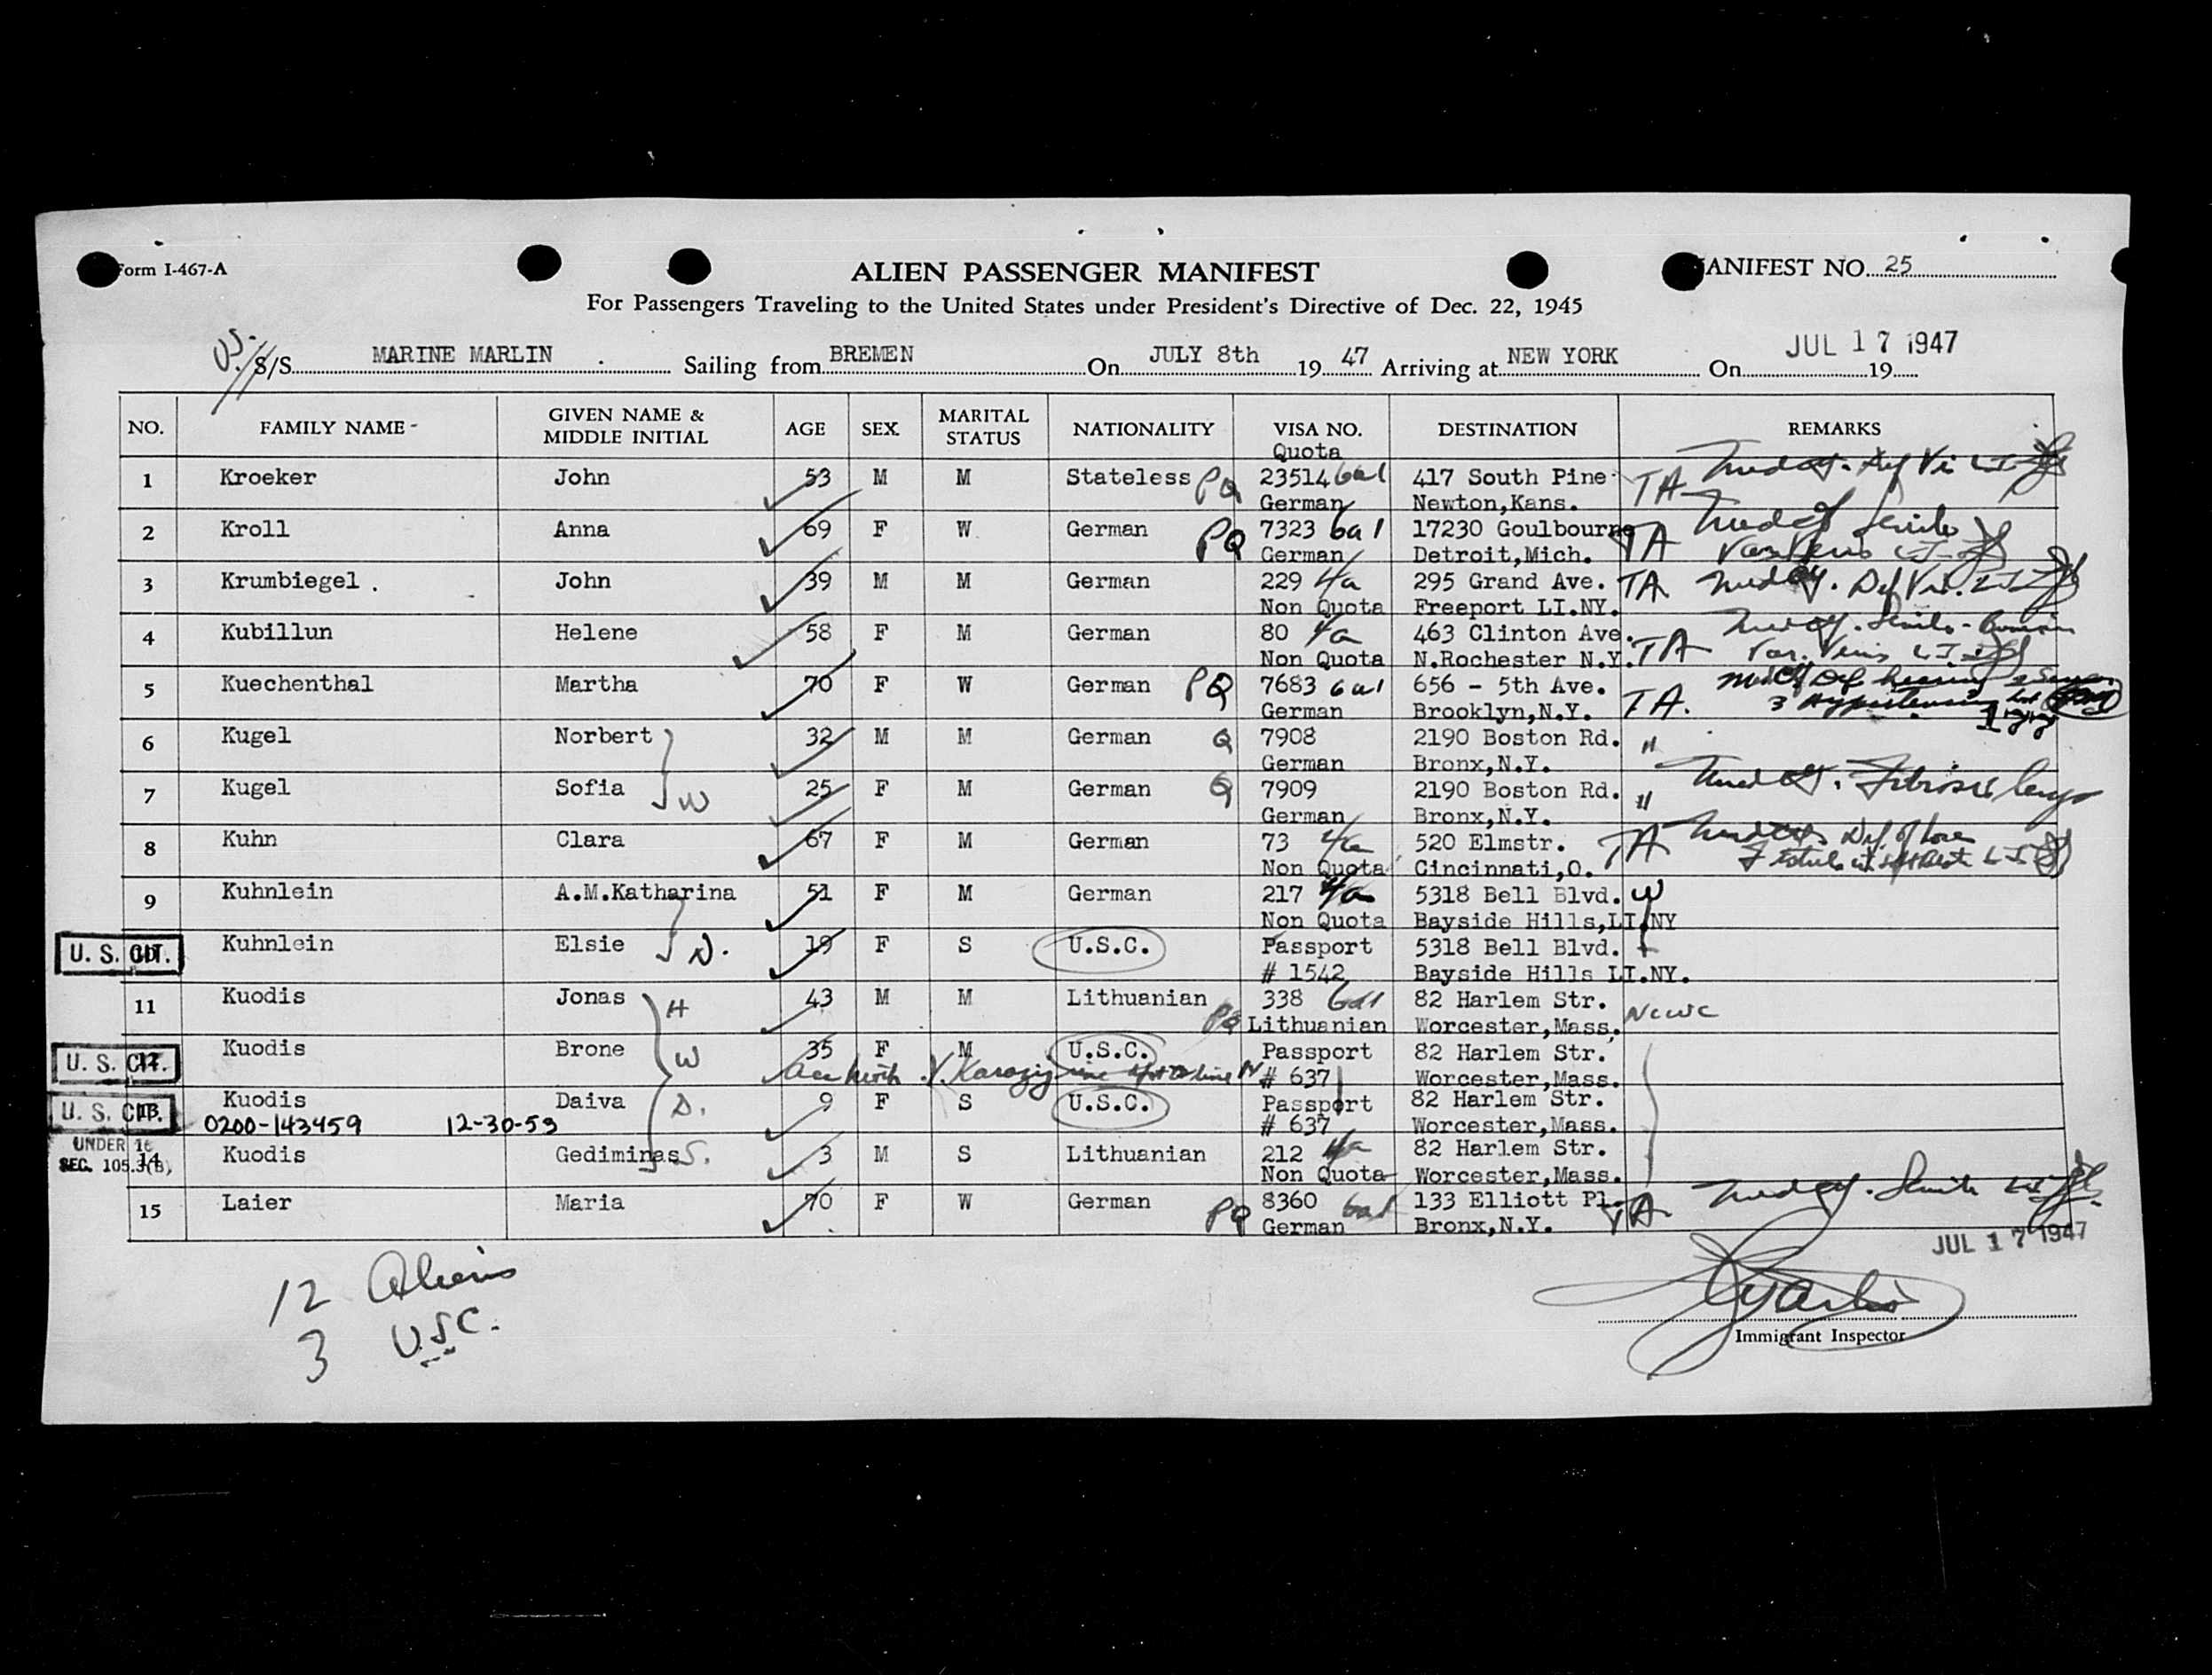 Form I-467-A
ALIEN PASSENGER MANIFEST
MANIFEST NO. 25
For Passengers Traveling to the United States under President's Directive of Dec. 22, 1945
U.S. S/S MARINE MARLIN Sailing from BREMEN On JULY 8th 19 47 Arriving at NEW YORK On JUL 17 1947 19
NO. FAMILY NAME GIVEN NAME & MIDDLE INITIAL AGE SEX MARITAL STATUS NATIONALITY VISA NO. DESTINATION REMARKS
Quota
1 Kroeker John 53 M M Stateless PQ 23514 6a1 417 South Pine TA
German Newton,Kans.
2 Kroll Anna 69 F W German PQ 7323 6a1 17230 Goulbourne TA
German Detroit,Mich.
3 Krumbiegel. John 39 M M German 229 4a 295 Grand Ave. TA
Non Quota Freeport LI.NY.
4 Kubillun Helene 58 F M German 80 4a 463 Clinton Ave. TA
Non Quota N.Rochester N.Y.
5 Kuechenthal Martha 70 F W German PQ 7683 6a1 656 - 5th Ave. TA.
German Brooklyn,N.Y.
6 Kugel Norbert 32 M M German Q 7908 2190 Boston Rd. "
German Bronx,N.Y.
7 Kugel Sofia W 25 F M German Q 7909 2190 Boston Rd. "
German Bronx,N.Y.
8 Kuhn Clara 67 F M German 73 4a 520 Elmstr. TA
Non Quota Cincinnati,O.
9 Kuhnlein A.M.Katharina 51 F M German 217 4a 5318 Bell Blvd. W
Non Quota Bayside Hills,LI.NY
U. S. CIT. Kuhnlein Elsie D. 19 F S U.S.C. Passport 5318 Bell Blvd.
# 1542 Bayside Hills LI.NY.
11 Kuodis Jonas H 43 M M Lithuanian 338 6a1 82 Harlem Str. NCWC
PQ Lithuanian Worcester,Mass.
U. S. CIT. Kuodis Brone W 35 F M U.S.C. Passport 82 Harlem Str.
# 637 Worcester,Mass.
U. S. CIT. Kuodis Daiva D. 9 F S U.S.C. Passport 82 Harlem Str.
0200-143459 12-30-53 # 637 Worcester,Mass.
UNDER 16
SEC. 105.3(B)
14 Kuodis Gediminas S. 3 M S Lithuanian 212 4a 82 Harlem Str.
Non Quota Worcester,Mass.
15 Laier Maria 70 F W German PQ 8360 6a1 133 Elliott Pl. TA
German Bronx,N.Y.
JUL 17 1947
12 Aliens
3 USC.
Immigrant Inspector